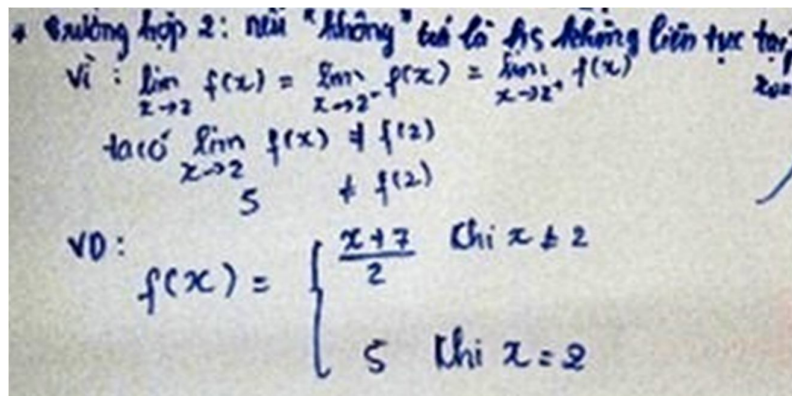 + Trường hợp 2: nếu "không" tức là hs không liên tục tại
Vì: lim x→2 f(x) = lim x→2⁻ f(x) = lim x→2⁺ f(x)
ta có lim x→2 f(x) ≠ f(2)
5 ≠ f(2)
VD:
f(x) = { x+7 / 2 khi x ≠ 2
5 khi x = 2